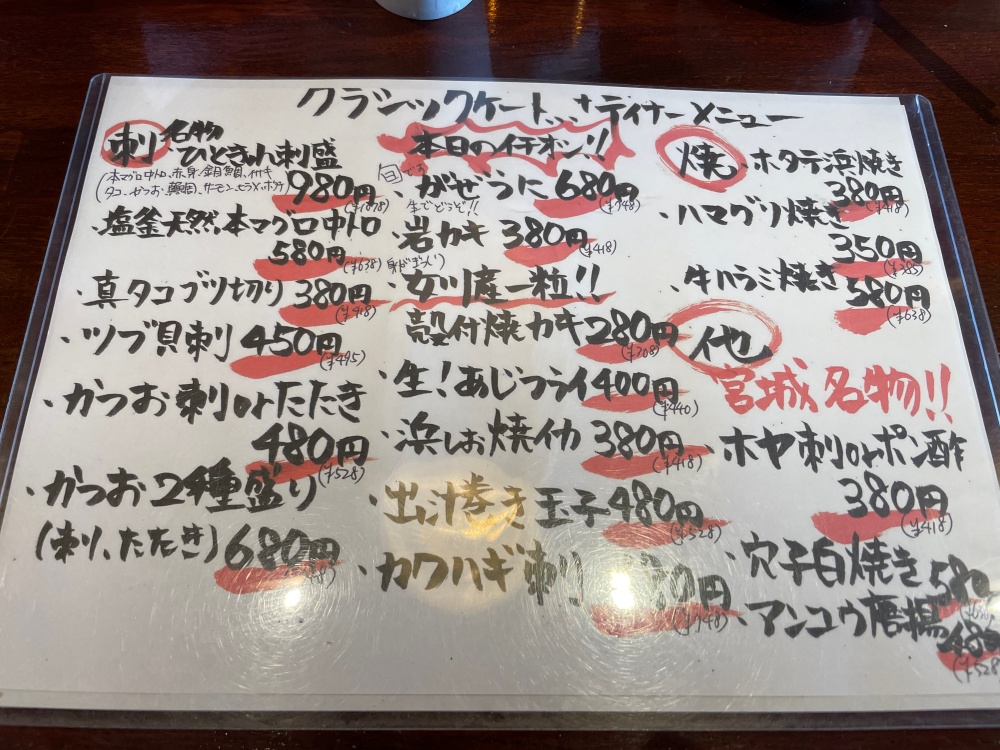 クラシックケート...+ディナーメニュー
刺 名物
ひときれ刺盛
980円
(¥1078)
・塩釜天然本マグロ中トロ
580円
(¥638)
・真タコブツ切り 380円
(¥418)
・ツブ貝刺 450円
(¥495)
・かつお刺orたたき
480円
(¥528)
・かつお2種盛り
(刺り、たたき) 680円
本日のイチオシ!!
旬です
・がぜうに 680円
生でどうぞ!! (¥748)
・岩カキ 380円
(¥418)
・女川産一粒!!
殻付焼カキ 280円
(¥308)
・生!あじフライ 400円
(¥440)
・浜しお焼イカ 380円
(¥418)
・出汁巻き玉子 480円
(¥528)
・カワハギ刺り 80円
(¥748)
焼
・ホタテ浜焼き
380円
(¥418)
・ハマグリ焼き
350円
(¥385)
・牛ハラミ焼き
580円
(¥638)
他
宮城名物!!
・ホヤ刺orポン酢
380円
(¥418)
・穴子白焼き 580
・アンコウ唐揚 480
(¥528